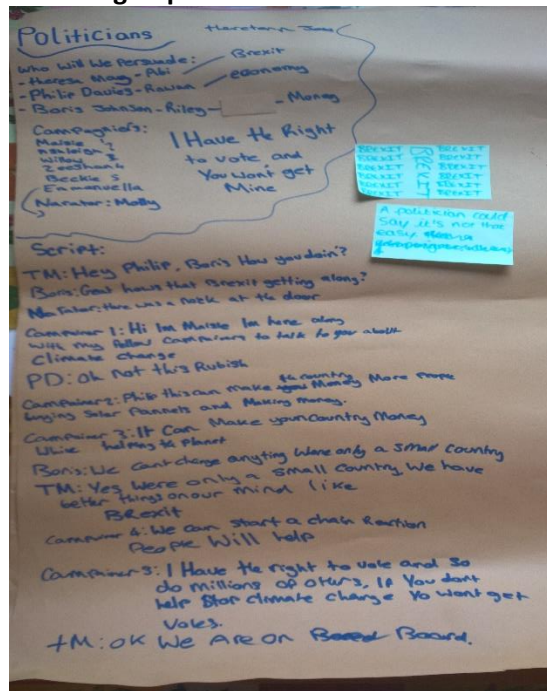 Politicians
Who Will We Persuade:
- Theresa May - Abi
Brexit
- Philip Davies - Rawan
economy
- Boris Johnson - Riley
- Money
Campaghiers:
Maisie
Willow
Zeeshan 4
Beckie 5
Emmanuella
Narrator: Molly
I Have the Right
to vote and
You Wont get
Mine
BREXIT BREXIT
BREXIT BREXIT
BREXIT BREXIT
BREXIT BREXIT
BREXIT BREXIT
BREXIT
A politician could
say it's not that
easy
Script:
TM: Hey Philip, Boris How you doin'?
Boris: Good hows that Brexit getting along?
Narrator: there was a nock at the door
Campainer 1: Hi Im Maisie Im here along
with my fellow Campainers to talk to you about
Climate change
PD: oh not this Rubish
Campainer 2: Philip this can make the country Money More People
buying Solar Pannels and Making money.
Campainer 3: It Can Make your Country Money
While helping the Planet
Boris: We cant change anyting Were only a small Country
TM: Yes Were only a small Country We have
better things on our mind like
BRexit
Campainer 4: We can start a chain Reaction
People Will help
Campainer 5: I Have the right to vote and so
do millions of others, If You dont
help Stop climate change Yo Wont get
Votes.
TM: ok We Are on Board.